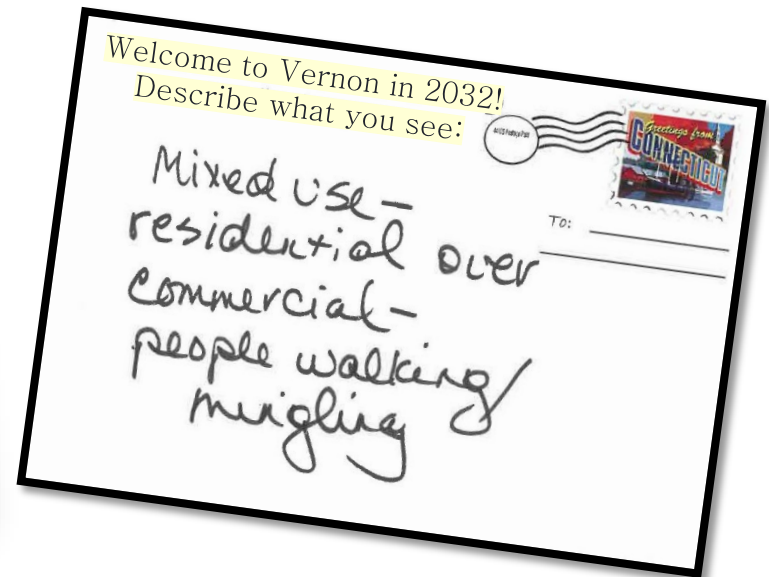 Welcome to Vernon in 2032!
Describe what you see:
Greetings from
CONNECTICUT
To:
Mixed use—
residential over
commercial—
people walking/
mingling